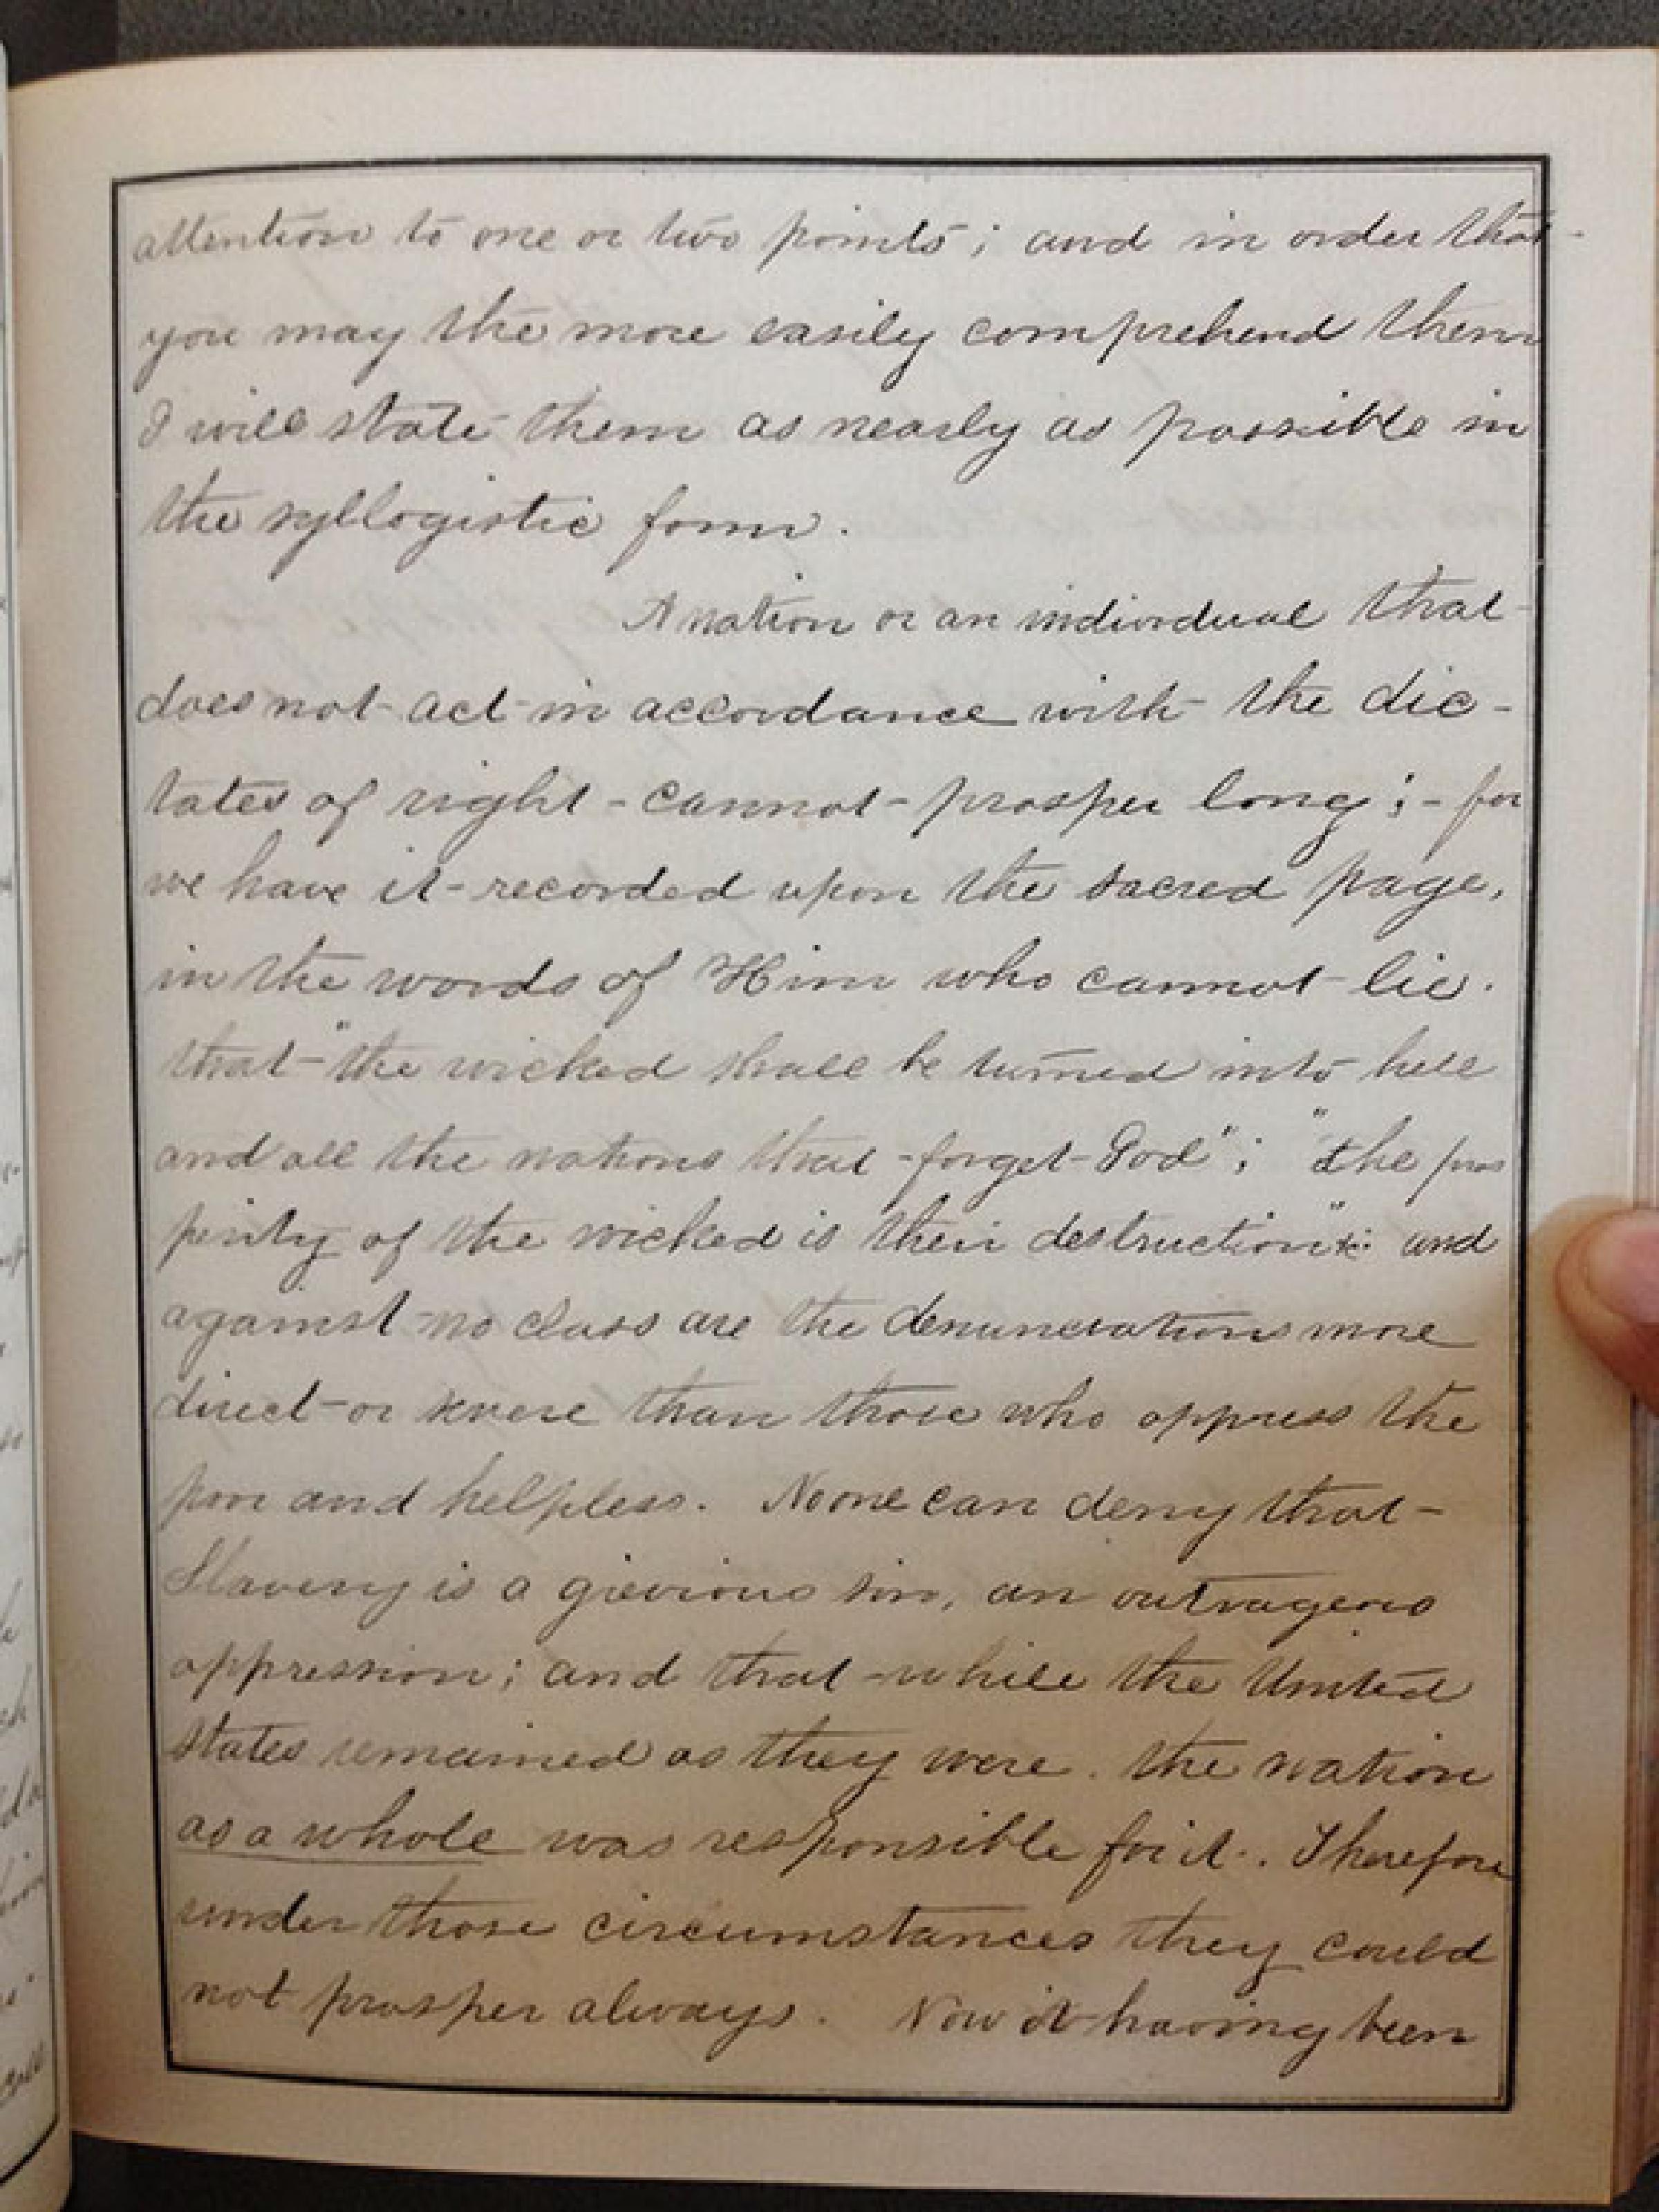 attention to one or two points; and in order that
you may the more easily comprehend them
I will state them as nearly as possible in
the syllogistic form.
A nation or an individual that
does not act in accordance with the dic-
tates of right cannot prosper long; - for
we have it recorded upon the sacred page,
in the words of Him who cannot lie.
that "the wicked shall be turned into hell
and all the nations that forget God"; "the pros
perity of the wicked is their destruction": and
against no class are the denunciations more
direct or severe than those who oppress the
poor and helpless. No one can deny that
Slavery is a grievious sin, an outrageous
oppression; and that while the United
States remained as they were. the nation
as a whole was responsible for it. Therefore
under those circumstances they could
not prosper always. Now it having been